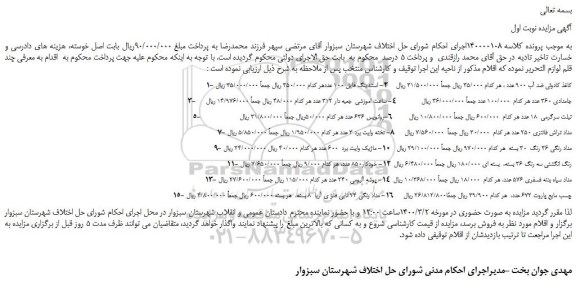 بسمه تعالی
آگهی مزایده نوبت اول
به موجب پرونده کلاسه ۱۴۰۰۰۰۱۰۸اجرای احکام شورای حل اختلاف شهرستان سبزوار آقای مرتضی سپهر فرزند محمدرضا به پرداخت مبلغ ۹۰/۰۰۰/۰۰۰ریال بابت اصل خواسته، هزینه های دادرسی و
خسارت تاخیر تادیه در حق آقای محمد رافتدی و پرداخت ۵ درصد محکوم به بابت حق الاجرای دولتی محکوم گردیده است. با توجه به اینکه محکوم علیه جهت پرداخت محکوم به اقدام به معرفی چند
قلم لوازم التحریر نموده که اقلام مذکور از ناحیه این اجرا توقیف و کارشناس منتخب پس از ملاحظه به شرح ذیل ارزیابی نموده است :
کاغذ کادویی ضد آب ۹۰۰ عدد هر کدام ۳۵/۰۰۰ ریال جمعاً ۳۱/۵۰۰/۰۰۰ ریال ۲- استیکنگ فایل ۱۰۰ عددهر کدام ۳۵۰/۰۰۰ ریال جمعاً ۳۵/۰۰۰/۰۰۰ ریال ۱-
جامدادی ۳۶۰ عدد هر کدام ۱۰۰/۰۰۰ عدد جمعاً ۳۶/۰۰۰/۰۰۰ ریال ۴- ساعت آموزشی جعبه دار ۳۱۲ عدد هر کدام ۴۸/۰۰۰ ریال جمعاً ۱۴/۹۷۶/۰۰۰ ریال ۳-
تیلت سرگرمی ۱۸ عدد هر کدام ۶۰۰/۰۰۰ ریال جمعاً ۱۰/۸۰۰/۰۰۰ ریال ۶- پاکنویس ۶۳۶ عدد هر کدام ۵۰/۰۰۰ریال جمعاً ۳۱/۸۰۰/۰۰۰ ریال ۵-
مداد تراش فانتزی ۲۵۰ عدد هر کدام ۳۰/۰۰۰ ریال جمعاً ۷/۵۶۰/۰۰۰ ریال ۸- تخته وایت برد ۳ عدد هر کدام ۱/۹۵۰/۰۰۰ ریال جمعاً ۵/۸۵۰/۰۰۰ ریال ۷-
مداد رنگی ۳۶ رنگ ۳۰ بسته هر کدام ۹۷۰/۰۰۰ ریال جمعاً ۲۹/۱۰۰/۰۰۰ ریال ۱۰- ماژیک وایت برد ۶۰۰ عدد هر کدام ۴۰/۰۰۰ ریال جمعاً ۲۴/۰۰۰/۰۰۰ ریال ۹-
رنگ انگشتی سه رنگ ۳۶ بسته، بسته ای ۱۸۰/۰۰۰ ریال جمعاً ۶/۴۸۰/۰۰۰ ریال ۱۲- خودکار۸۵۰ عدد هر کدام ۹/۰۰۰ ریال جمعاً ۷/۶۵۰/۰۰۰ ریال ۱۱-
مداد سیاه پنته فسفری ۵۷۶ عدد هر کدام ۱۸/۰۰۰ ریال جمعاً ۱۰/۳۶۸/۰۰۰ ریال ۱۴- پوشه آلبومی ۲۴۰ عدد هر کدام ۱۱۵/۰۰۰ ریال جمعاً ۲۷/۶۰۰/۰۰۰ ریال ۱۳-
چسب مایع پاروت ۶۷۲ عدد هر کدام ۳۹/۹۰۰ ریال جمعاً ۲۶/۸۱۲/۸۰۰ ریال ۱۶- مداد رنگی ۲۴تایی فنر ی آریا ۸ بسته، هر بسته ۶۰۰/۰۰۰ ریال جمعاً ۴/۸۰۰/۰۰۰ ریال ۱۵-
لذا مقرر گردید مزایده به صورت حضوری در مورخه ۱۴۰۰/۳/۲ساعت ۱۲:۰۰ و با حضور نماینده محترم دادستان عمومی و انقلاب شهرستان سبزوار در محل اجرای احکام شورای حل اختلاف شهرستان سبزوار
برگزار و اقلام مورد نظر به فروش برسد، مزایده از قیمت کارشناسی شروع و به کسانی که بالاترین مبلغ را پیشنهاد نمایند واگذار خواهد گردید، متقاضیان می توانند ظرف مدت ۵ روز قبل از برگزاری مزایده به
این اجرا مراجعت تا ترتیب بازدیدشان از اقلام توقیفی داده شود.
مهدی جوان بخت –مدیراجرای احکام مدنی شورای حل اختلاف شهرستان سبزوار
ParsNamadData
۰۲۱-۸۸۳۴۹۶۷۰-۵